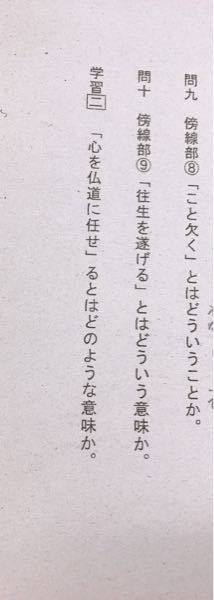 問九　傍線部⑧「こと欠く」とはどういうことか。
問十　傍線部⑨「往生を遂げる」とはどういう意味か。
学習二　「心を仏道に任せ」るとはどのような意味か。